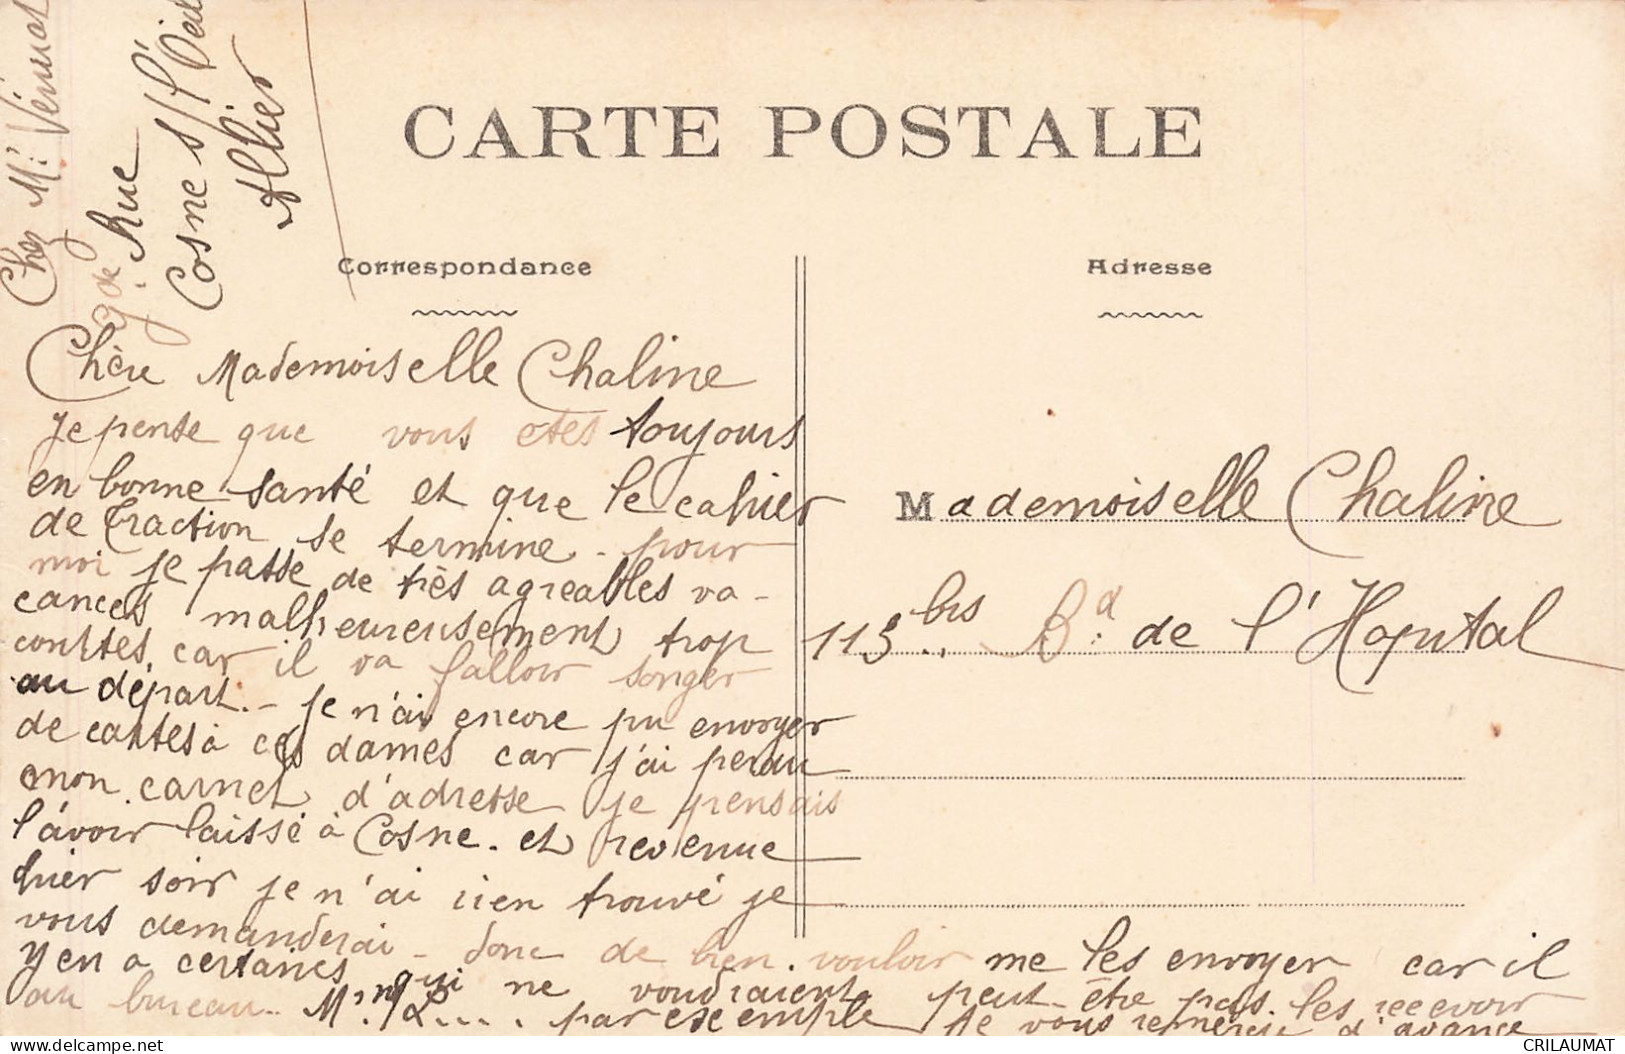 Chez Mr. Vénuat
gde Rue
Cosne s/ l'Oeil
Allier
CARTE POSTALE
Correspondance
Adresse
Chère Mademoiselle Chaline
Je pense que vous etes toujours
en bonne santé et que le cahier
de traction se termine - pour
moi je passe de très agreables va-
cances malheureusement trop
courtes, car il va falloir songer
au départ. - Je n'ai encore pu envoyer
de cartes à ces dames car j'ai perdu
mon carnet d'adresse je pensais
l'avoir laissé à Cosne. et revenue
hier soir je n'ai rien trouvé je
vous demanderai - donc de bien vouloir me les envoyer car il
y en a certaines qui ne voudraient peut-être pas les recevoir
au bureau. par exemple je vous remercie d'avance
Mademoiselle Chaline
113 bis Bd. de l'Hopital
CRILAUMAT